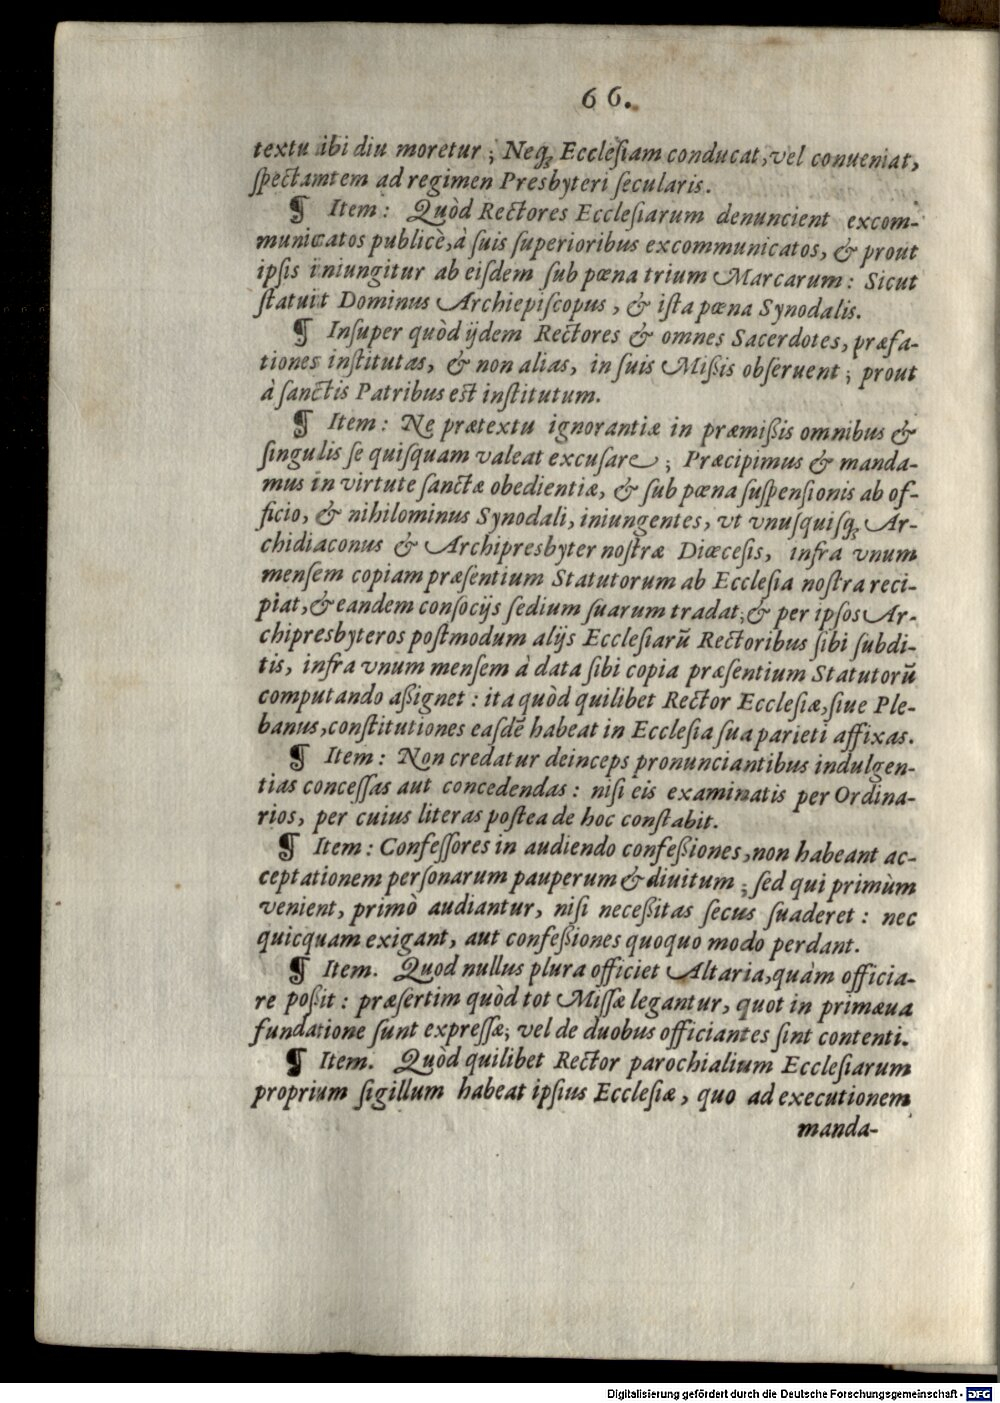 66.
textu ibi diu moretur; Neq́ꝫ Eccleſiam conducat, vel conueniat,
ſpectamtem ad regimen Presbyteri ſecularis.
¶ Item: Quòd Rectores Eccleſiarum denuncient excom-
municatos publicè, à ſuis ſuperioribus excommunicatos, & prout
ipſis iniungitur ab eiſdem ſub pœna trium Marcarum: Sicut
ſtatuit Dominus Archiepiſcopus, & iſta pœna Synodalis.
¶ Inſuper quòd ijdem Rectores & omnes Sacerdotes, præfa-
tiones inſtitutas, & non alias, in ſuis Mißis obſeruent; prout
à ſanctis Patribus est inſtitutum.
¶ Item: Ne prætextu ignorantiæ in præmißis omnibus &
ſingulis ſe quiſquam valeat excuſare; Præcipimus & manda-
mus in virtute ſanctæ obedientiæ, & ſub pœna ſuſpenſionis ab of-
ficio, & nihilominus Synodali, iniungentes, vt vnuſquiſqꝫ Ar-
chidiaconus & Archipresbyter noſtræ Diœceſis, infra vnum
menſem copiam præſentium Statutorum ab Eccleſia noſtra reci-
piat, & eandem conſocijs ſedium ſuarum tradat; & per ipſos Ar-
chipresbyteros poſtmodum alijs Eccleſiarũ Rectoribus ſibi ſubdi-
tis, infra vnum menſem à data ſibi copia præſentium Statutorũ
computando aßignet: ita quòd quilibet Rector Eccleſiæ, ſiue Ple-
banus, conſtitutiones eaſdẽ habeat in Eccleſia ſua parieti affixas.
¶ Item: Non credatur deinceps pronunciantibus indulgen-
tias conceſſas aut concedendas: niſi eis examinatis per Ordina-
rios, per cuius literas poſtea de hoc conſtabit.
¶ Item: Confeſſores in audiendo confeßiones, non habeant ac-
ceptationem perſonarum pauperum & diuitum; ſed qui primùm
venient, primò audiantur, niſi neceßitas ſecus ſuaderet: nec
quicquam exigant, aut confeßiones quoquo modo perdant.
¶ Item. Quod nullus plura officiet Altaria, quàm officia-
re poßit: præſertim quòd tot Miſſæ legantur, quot in primæua
fundatione ſunt expreſſæ; vel de duobus officiantes ſint contenti.
¶ Item. Quòd quilibet Rector parochialium Eccleſiarum
proprium ſigillum habeat ipſius Eccleſiæ, quo ad executionem
manda-
Digitalisierung gefördert durch die Deutsche Forschungsgemeinschaft - DFG